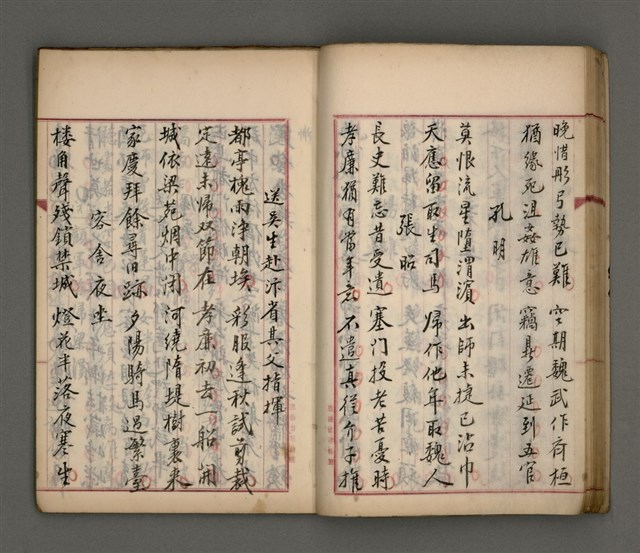 晚惜彤弓勢已難　空期魏武作齊桓
猶緣死沮姦雄意　竊鼎遷延到五官
孔明
莫恨流星墮渭濱　出師未捷已沾巾
天應留取生司馬　歸作他年取魏人
張昭
長史難忘昔受遺　塞門投老苦憂時
孝廉猶有當年志　不遣真從介子推
送吳生赴汴省其父指揮
都亭槐雨淨朝埃　彩服逢秋試剪裁
定遠未歸双節在　孝廉初去一船開
城依梁苑烟中闭　河繞隋堤樹裏來
家慶拜餘尋旧跡　夕陽騎馬過繁臺
客舍夜坐
楼角聲殘鎖禁城　燈花半落夜寒生